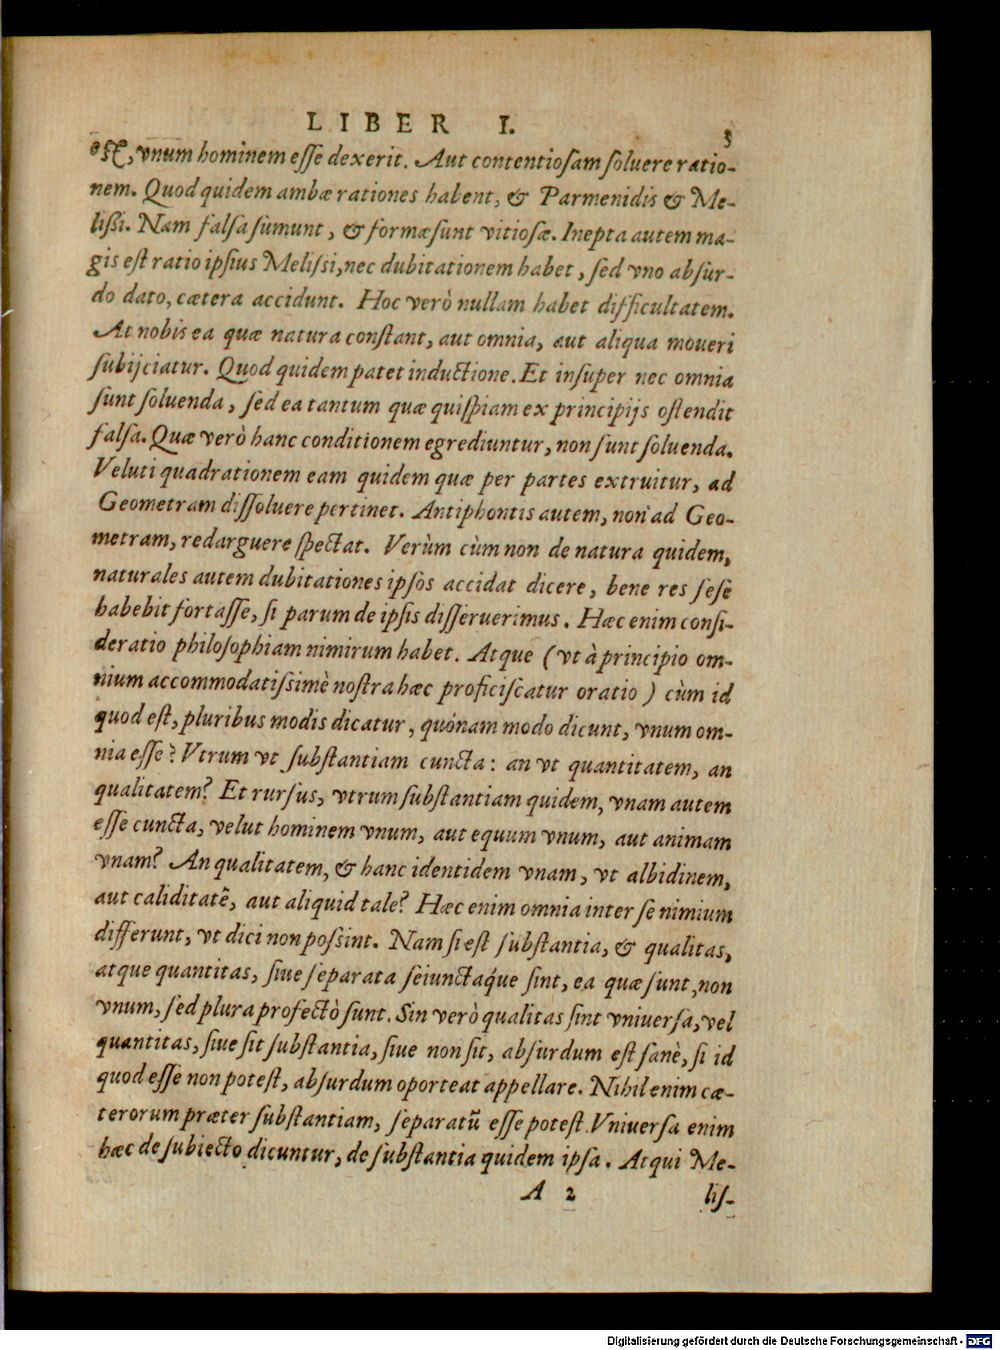 LIBER I. 3
est, vnum hominem esse dexerit. Aut contentiosam soluere ratio-
nem. Quod quidem ambæ rationes habent, & Parmenidis & Me-
lißi. Nam falsa sumunt, & formæ sunt vitiosæ. Inepta autem ma-
gis est ratio ipsius Melissi, nec dubitationem habet, sed vno absur-
do dato, cætera accidunt. Hoc verò nullam habet difficultatem.
At nobis ea quæ natura constant, aut omnia, aut aliqua moueri
subijciatur. Quod quidem patet inductione. Et insuper nec omnia
sunt soluenda, sed ea tantum quæ quispiam ex principijs ostendit
falsa. Quæ verò hanc conditionem egrediuntur, non sunt soluenda.
Veluti quadrationem eam quidem quæ per partes extruitur, ad
Geometram dissoluere pertinet. Antiphontis autem, non ad Geo-
metram, redarguere spectat. Verùm cùm non de natura quidem,
naturales autem dubitationes ipsos accidat dicere, bene res sese
habebit fortasse, si parum de ipsis disseruerimus. Hæc enim consi-
deratio philosophiam nimirum habet. Atque (vt à principio om-
nium accommodatissimè nostra hæc proficiscatur oratio) cùm id
quod est, pluribus modis dicatur, quónam modo dicunt, vnum om-
nia esse? Vtrum vt substantiam cuncta: an vt quantitatem, an
qualitatem? Et rursus, vtrum substantiam quidem, vnam autem
esse cuncta, velut hominem vnum, aut equum vnum, aut animam
vnam? An qualitatem, & hanc identidem vnam, vt albidinem,
aut caliditatē, aut aliquid tale? Hæc enim omnia inter se nimium
differunt, vt dici non possint. Nam si est substantia, & qualitas,
atque quantitas, siue separata seiunctaq́ue sint, ea quæ sunt, non
vnum, sed plura profectò sunt. Sin verò qualitas sint vniuersa, vel
quantitas, siue sit substantia, siue non sit, absurdum est sanè, si id
quod esse non potest, absurdum oporteat appellare. Nihil enim cæ-
terorum præter substantiam, separatū esse potest. Vniuersa enim
hæc de subiecto dicuntur, de substantia quidem ipsa. Atqui Me-
A 2 lis-
Digitalisierung gefördert durch die Deutsche Forschungsgemeinschaft - DFG